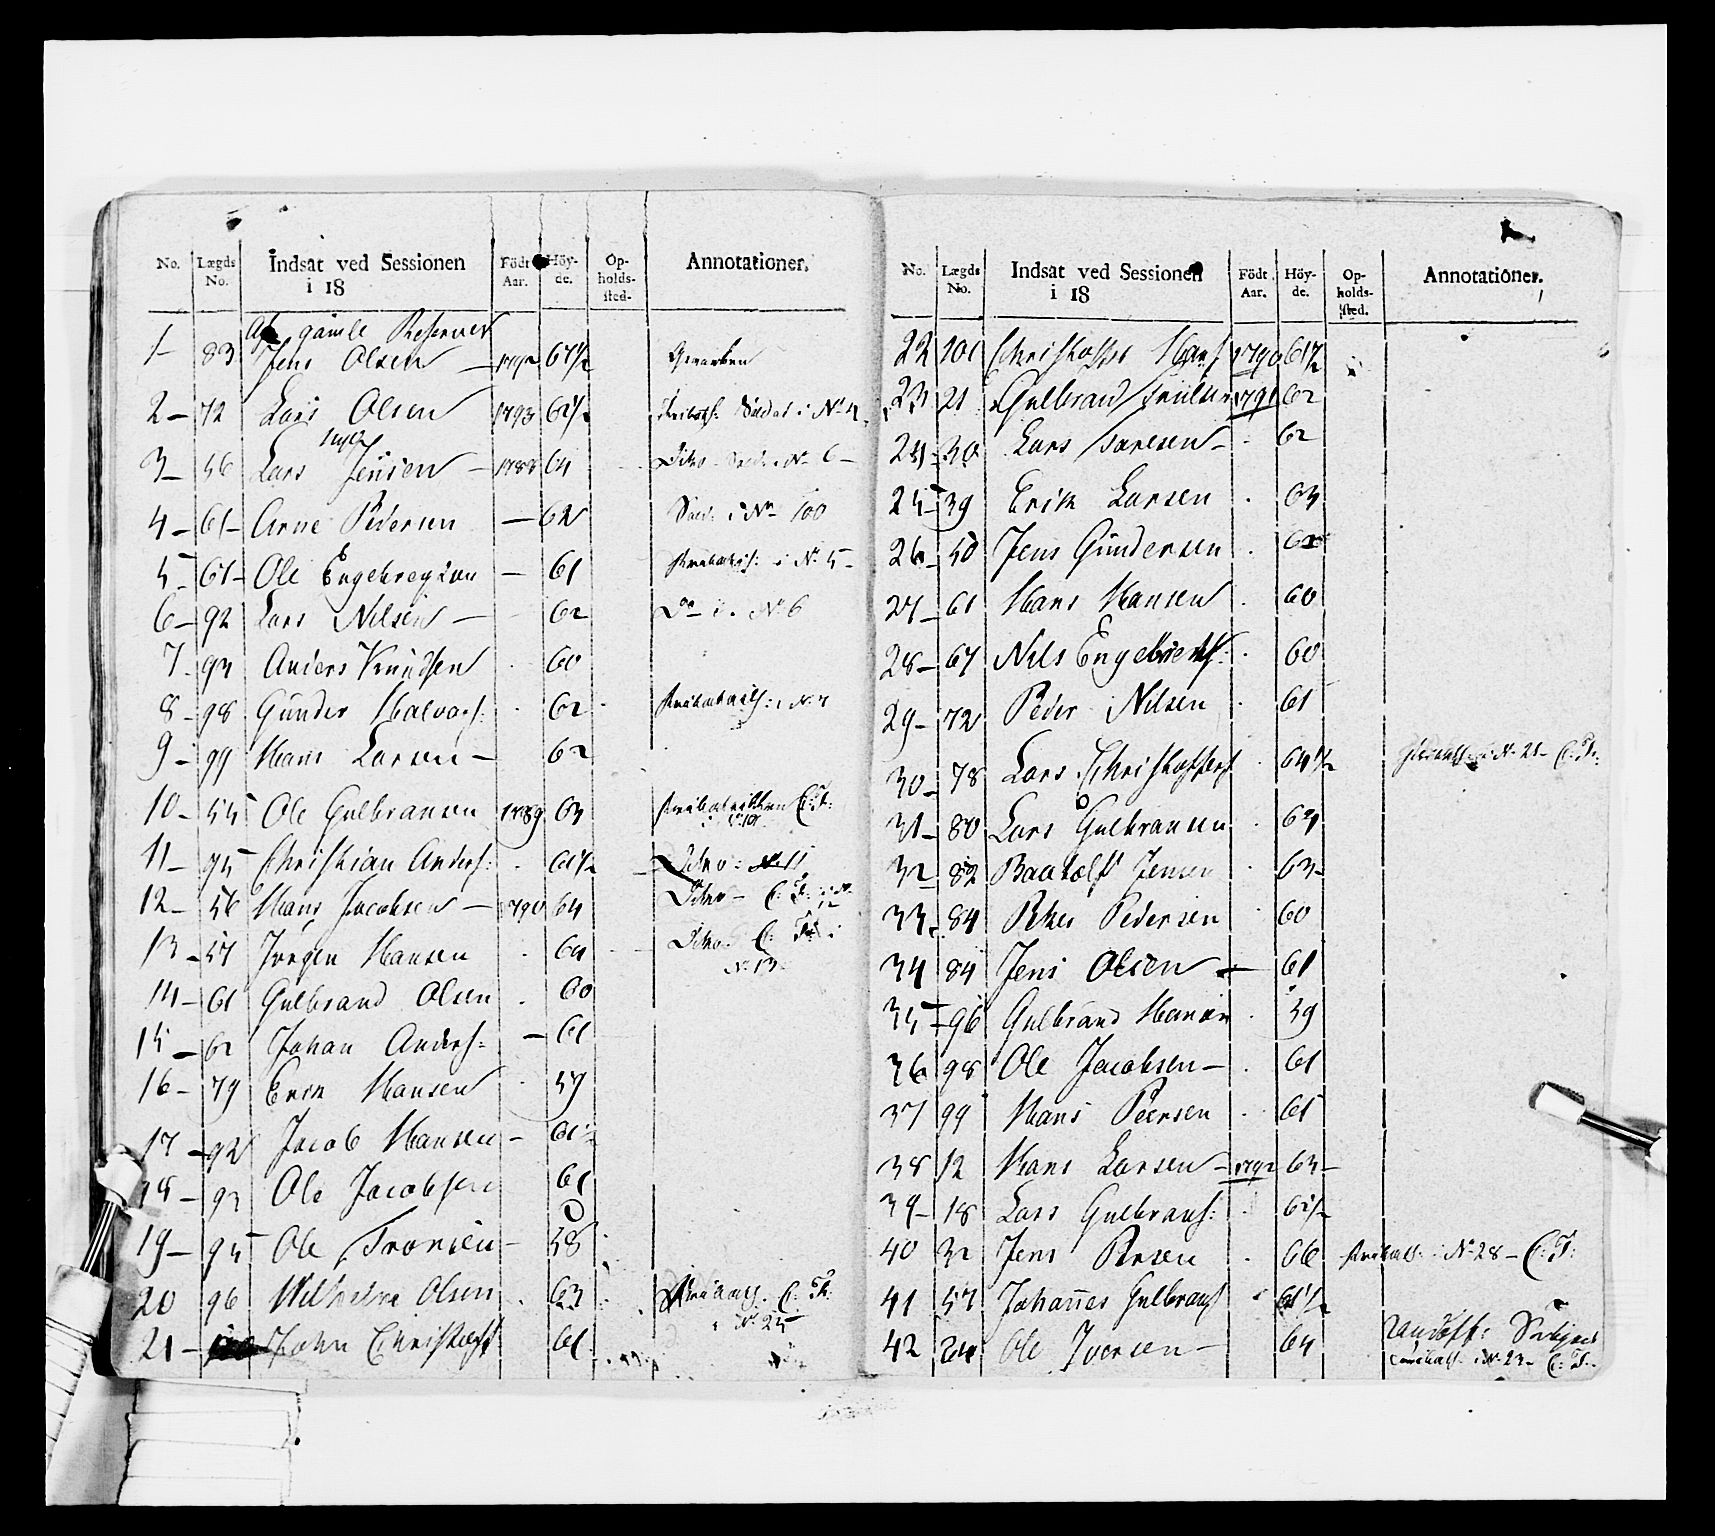 No. Lægds No. Indsat ved Sessionen i 18 Födt Aar. Höyde. Opholds-sted. Annotationer.
Af gamle Reserver
1 – 83 Jens Olsen – 1792 61½
2 – 72 Lars Olsen 1793 62½ Soldat i No
3 – 56 Lars Jensen – 1788 64 Ditto No 6 –
4 – 61 – Arne Pedersen – 62 i No 100
5 – 61 – Ole Engebregtsen – 61 i No 5 –
6 – 92 Lars Nilsen – 62 Do i No 6
7 – 93 Anders Knudsen 60
8 – 98 Gunder Halvors: 62 i No 7
9 – 99 Hans Larsen – 62
10 – 55 Ole Gulbransen 1789 63 C: T:
11 – 95 Christian Anders: 61½ Ditto No 11
12 – 56 Hans Jacobsen – 1790 64 Ditto – C: T: i No 12
13 – 57 Jörgen Hansen 64 Ditto C: T: i
No 13
14 – 61 Gulbrand Olsen 60
15 – 62 Johan Anders: – 61
16 – 79 Erik Hansen 57
17 – 92 Jacob Hansen – 61½
18 – 93 Ole Jacobsen 61
19 – 95 Ole Tronsen – 58
20 96 Wilhelm Olsen 63 C: T:
i No 25
21 – John Christoffs 61
No. Lægds No. Indsat ved Sessionen i 18 Födt Aar. Höyde. Op-holds-sted. Annotationer.
22 101 Christoffer Hans 1790 61½
23 21 Gulbrand 1791 62
24 – 30 Lars Torresen – 62
25 – 39 Erik Larsen 63
26 – 50 Jens Gundersen
27 – 61 Hans Hansen 60
28 – 67 Nils Engebrets: 60
29 – 72 Peder Nilsen 61
30 – 78 Lars Christoffers 64½ i No 21 – C: T:
31 – 80 Lars Gulbransen 64
32 82 Jensen 63 –
33 84 Peder Pedersen 60
34 84 Jens Olsen – 61
35 – 96 Gulbrand Hansen 59
36 98 Ole Jacobsen – 61
37 99 Hans Peersen 61
38 12 Hans Larsen – 1792 63 –
39 – 18 Lars Gulbrans: 62½
40 32 Jens 66 i No 28 – C: T:
41 57 Johannes Gulbrans 61½
42 24 Ole Iversen – 64
i No 23 – C: T: